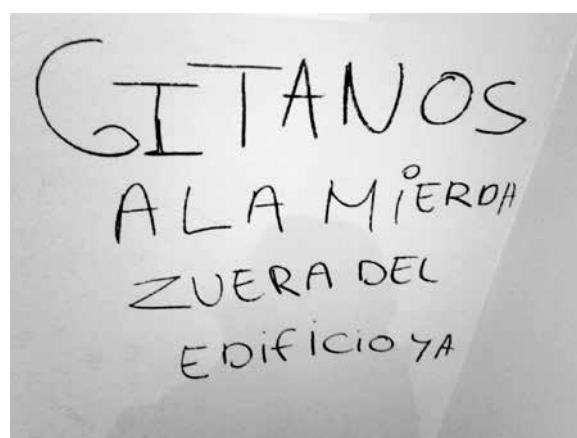 GITANOS
A LA MiERDA
ZUERA DEL
EDifICiO YA